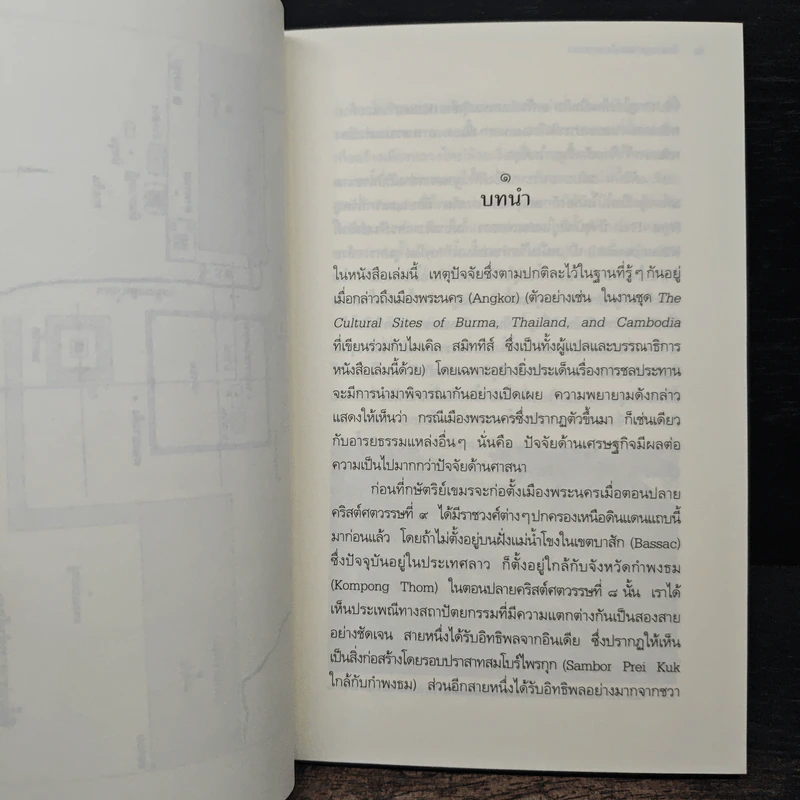 ๑
บทนำ
ในหนังสือเล่มนี้ เหตุปัจจัยซึ่งตามปกติละไว้ในฐานที่รู้ๆ กันอยู่
เมื่อกล่าวถึงเมืองพระนคร (Angkor) (ตัวอย่างเช่น ในงานชุด The
Cultural Sites of Burma, Thailand, and Cambodia
ที่เขียนร่วมกับไมเคิล สมิททีส์ ซึ่งเป็นทั้งผู้แปลและบรรณาธิการ
หนังสือเล่มนี้ด้วย) โดยเฉพาะอย่างยิ่งประเด็นเรื่องการชลประทาน
จะมีการนำมาพิจารณากันอย่างเปิดเผย ความพยายามดังกล่าว
แสดงให้เห็นว่า กรณีเมืองพระนครซึ่งปรากฏตัวขึ้นมา ก็เช่นเดียว
กับอารยธรรมแหล่งอื่นๆ นั่นคือ ปัจจัยด้านเศรษฐกิจมีผลต่อ
ความเป็นไปมากกว่าปัจจัยด้านศาสนา
ก่อนที่กษัตริย์เขมรจะก่อตั้งเมืองพระนครเมื่อตอนปลาย
คริสต์ศตวรรษที่ ๙ ได้มีราชวงศ์ต่างๆ ปกครองเหนือดินแดนแถบนี้
มาก่อนแล้ว โดยถ้าไม่ตั้งอยู่บนฝั่งแม่น้ำโขงในเขตบาสัก (Bassac)
ซึ่งปัจจุบันอยู่ในประเทศลาว ก็ตั้งอยู่ใกล้กับจังหวัดกำพงธม
(Kompong Thom) ในตอนปลายคริสต์ศตวรรษที่ ๘ นั้น เราได้
เห็นประเพณีทางสถาปัตยกรรมที่มีความแตกต่างกันเป็นสองสาย
อย่างชัดเจน สายหนึ่งได้รับอิทธิพลจากอินเดีย ซึ่งปรากฏให้เห็น
เป็นสิ่งก่อสร้างโดยรอบปราสาทสมโบร์ไพรกุก (Sambor Prei Kuk
ใกล้กับกำพงธม) ส่วนอีกสายหนึ่งได้รับอิทธิพลอย่างมากจากชวา